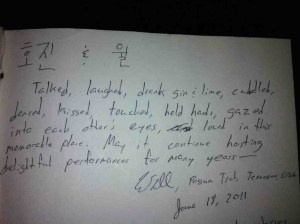 호진 & 윌
Talked, laughed, drank gin & lime, cuddled,
danced, kissed, touched, held hands, gazed
into each other's eyes, loved in this
memorable place. May it continue hosting
delightful performances for many years—
Will,
June 18, 2011